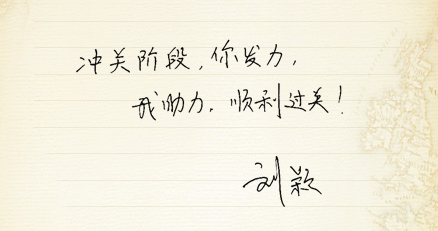 冲关阶段，你发力，
我助力，顺利过关！
刘颖